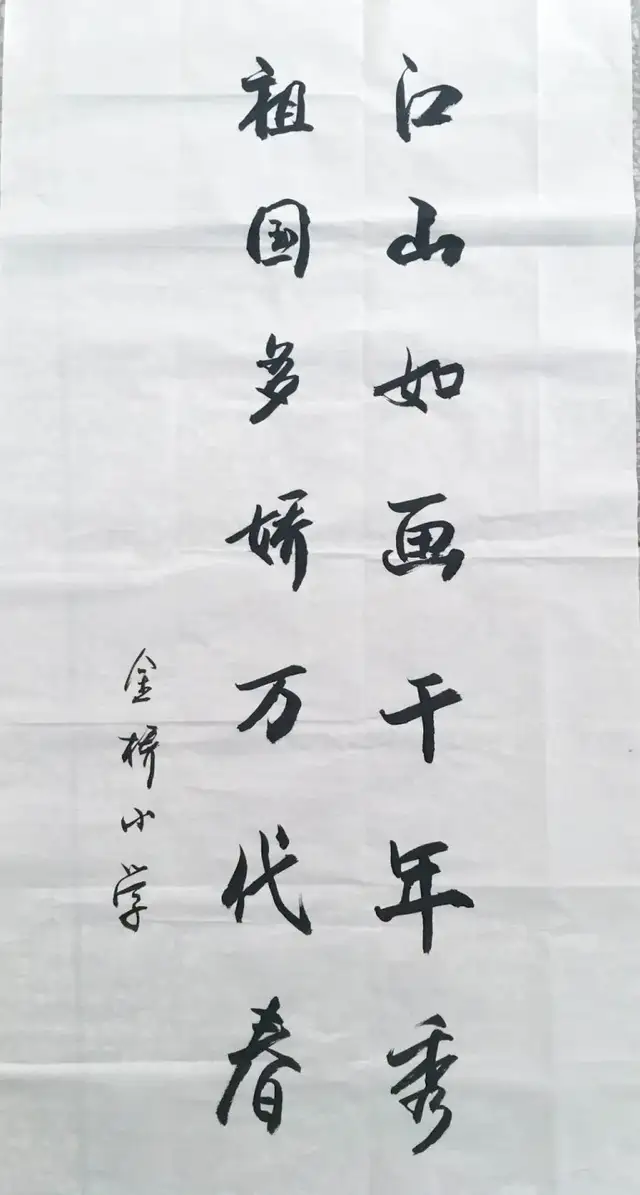 江山如画千年秀
祖国多娇万代春
金桥小学